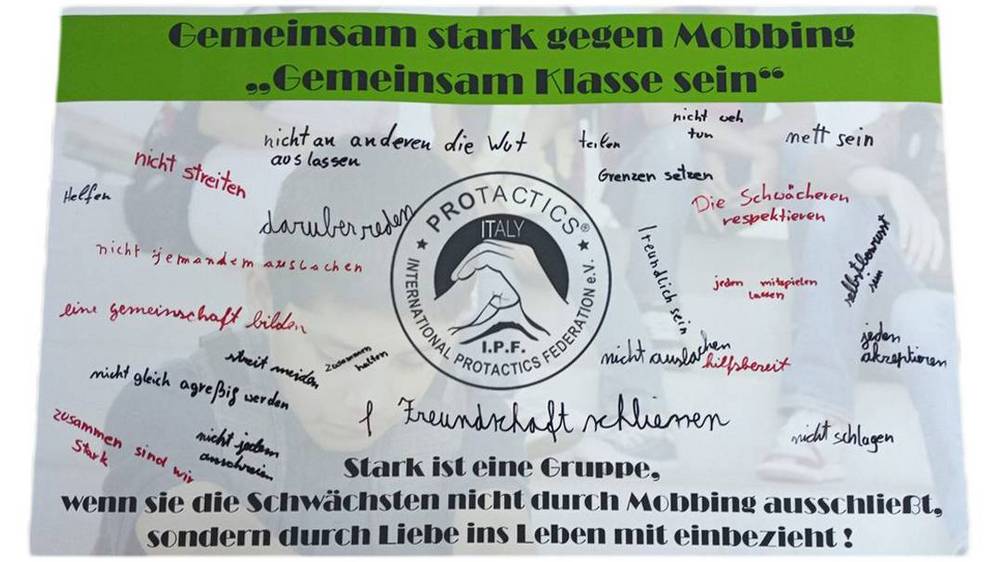 Gemeinsam stark gegen Mobbing
„Gemeinsam Klasse sein“
nicht weh
tun
nicht an anderen die Wut
aus lassen
teilen
nett sein
nicht streiten
Grenzen setzen
Helfen
Die Schwächeren
respektieren
darüber reden
PROTACTICS®
ITALY
INTERNATIONAL PROTACTICS FEDERATION e.V.
I.P.F.
selbstbewusst
sein
freundlich sein
nicht jemandem auslachen
jeden mitspielen
lassen
eine gemeinschaft bilden
jeden
akzeptieren
streit meiden
zusammen
helfen
nicht auslachen
hilfsbereit
nicht gleich agreßig werden
Freundschaft schliessen
zusammen sind wir
Stark
nicht jedem
anschreien
nicht schlagen
Stark ist eine Gruppe,
wenn sie die Schwächsten nicht durch Mobbing ausschließt,
sondern durch Liebe ins Leben mit einbezieht !